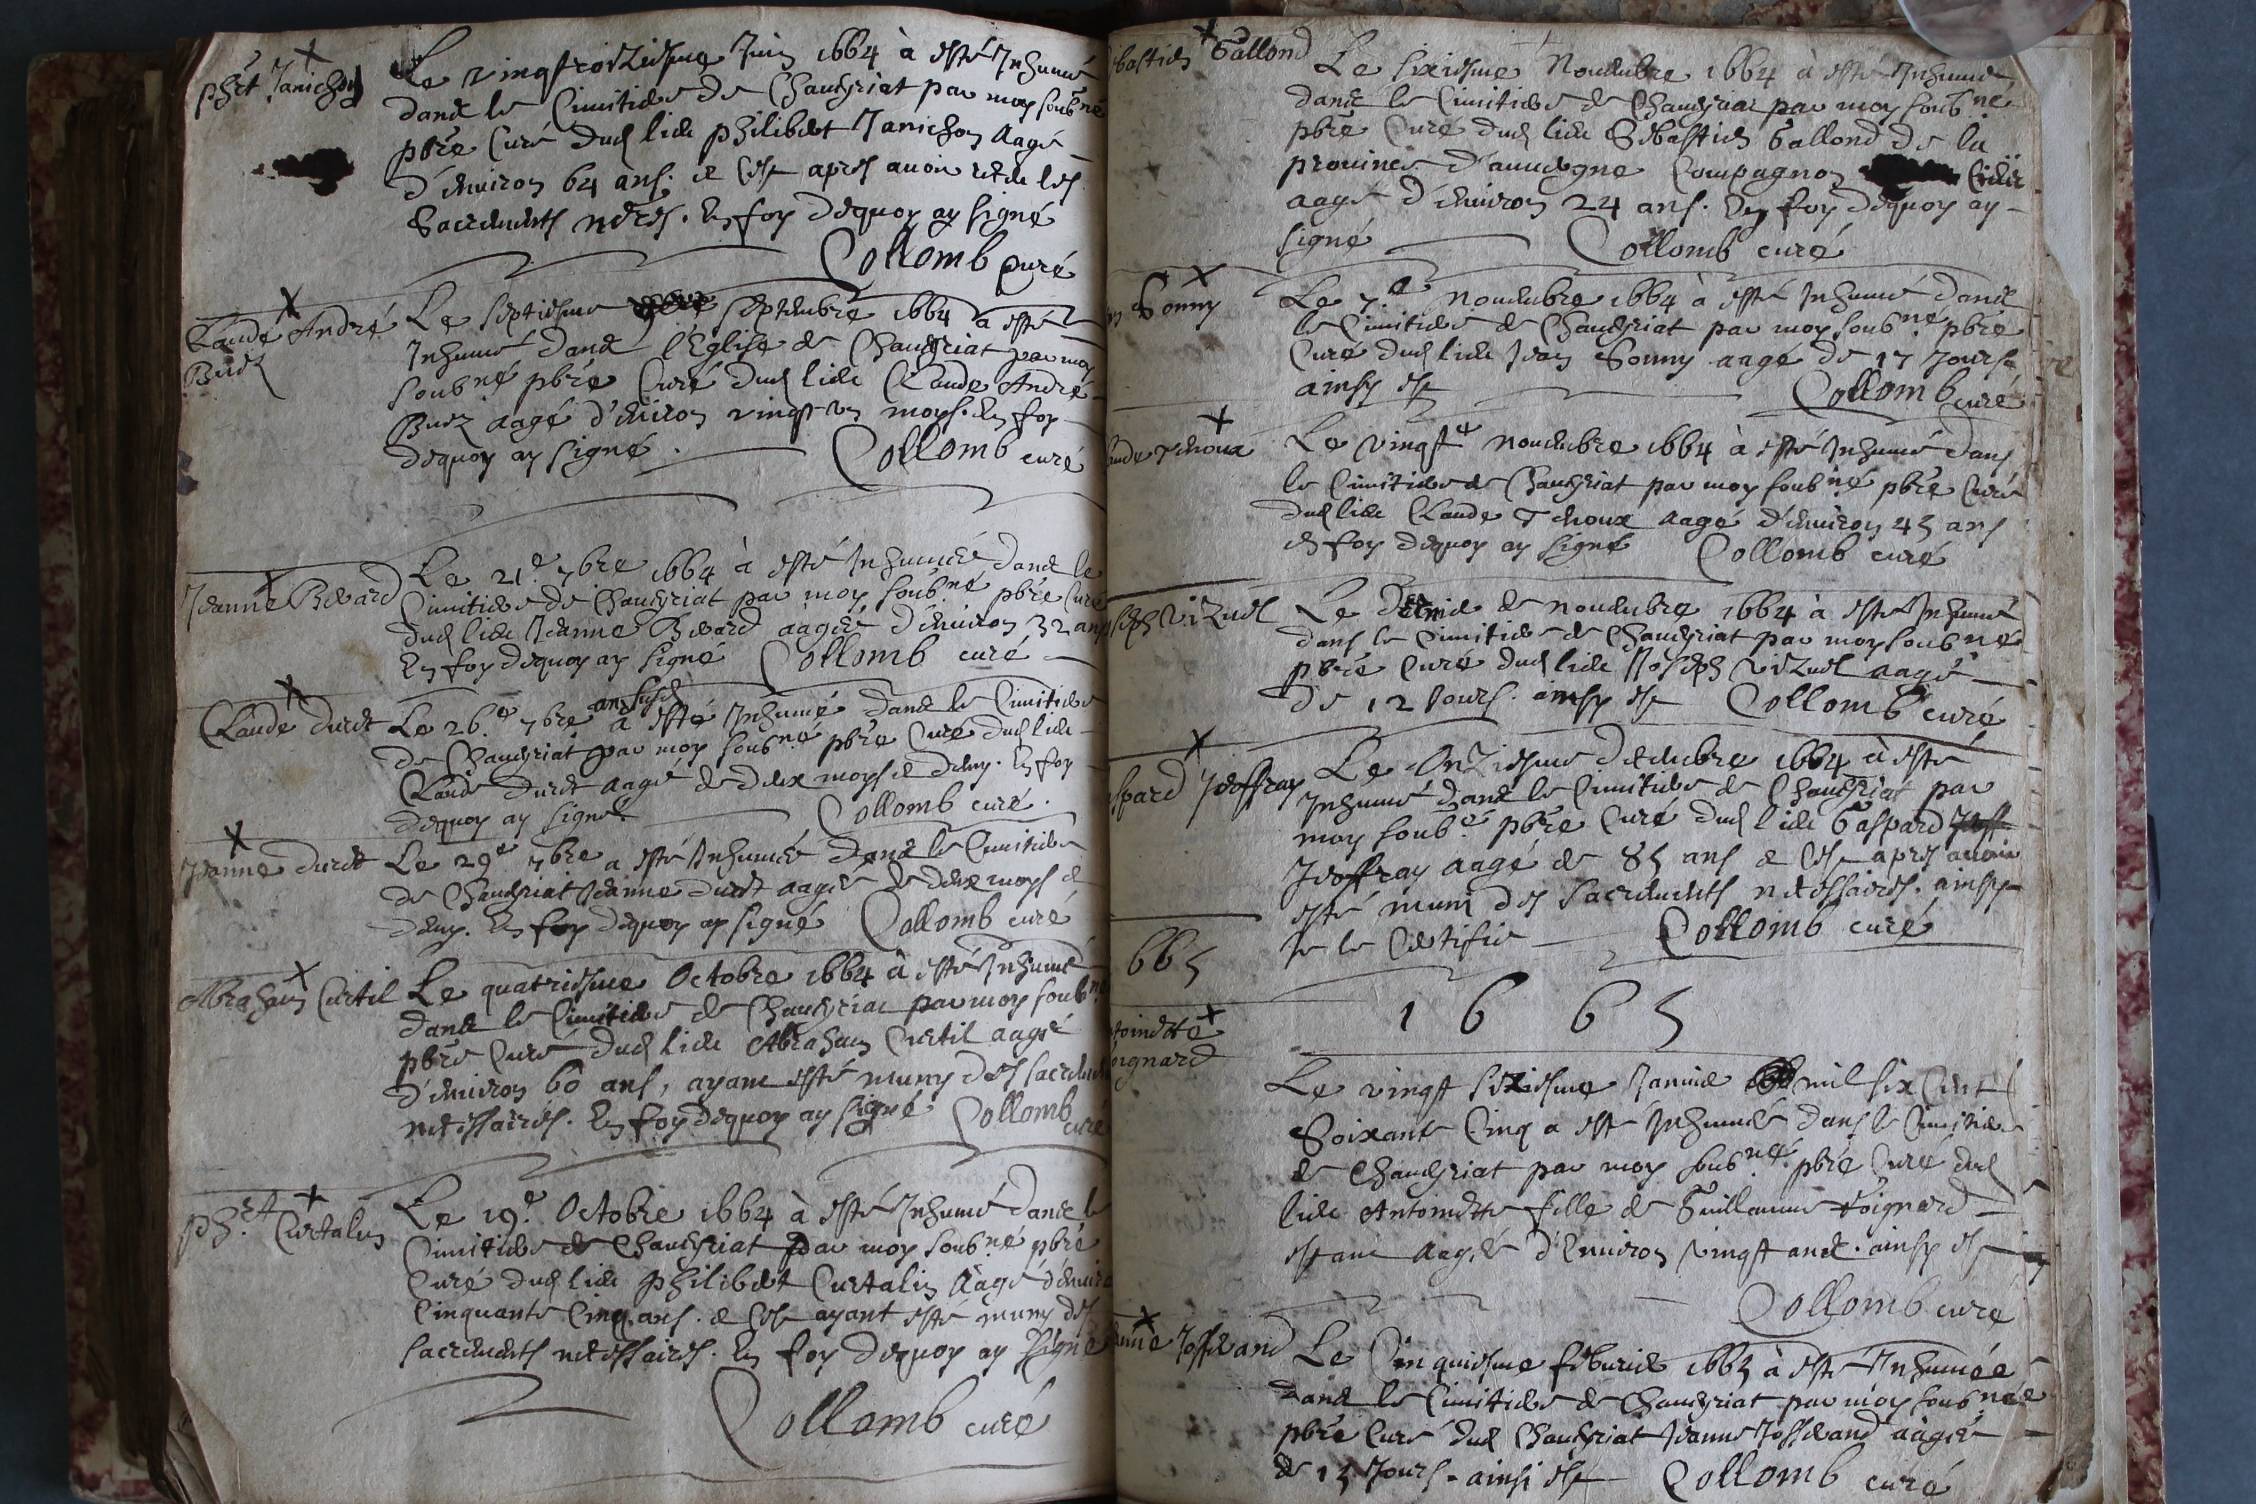 phēt Janichon
Le vingtroiziesme Juin 1664 à esté Inhumé
dans le Cimitiere de Chaveyriat par moy soubné
pbrē Curé dud lieu philibert Janichon aagé
d'environ 64 ans. et Ce apres avoir receu les
Sacrements necres. En foy dequoy ay signé
Collomb Curé
Claude André
Buez
Le septiesme septembre 1664 a esté
Inhumé dans l'Eglise de Chaveyriat par moy
soubné pbrē Curé dud lieu Claude André
Buez aagé d'environ vingt un moys. En foy
dequoy ay signé. Collomb curé
Jeanne Berard
Le 21e 7bre 1664 à esté Inhumée dans le
Cimitiere de Chaveyriat par moy soubné pbrē Curé
dud lieu Jeanne Berard aagée d'environ 32 ans
En foy dequoy ay signé Collomb curé
Claude duret
Le 26e 7bre a esté Inhumé dans le Cimitiere
de Chaveyriat par moy soubné pbrē Curé dud lieu
Claude duret aagé de deux moys et demy. En foy
dequoy ay signé Collomb curé.
Jeanne duret
Le 29e 7bre a esté Inhumée dans le Cimitiere
de Chaveyriat Jeanne duret aagée de deux moys et
demy. En foy dequoy ay signé Collomb curé
Abraham Curtil
Le quatriesme Octobre 1664 à esté Inhumé
dans le Cimitiere de Chaveyriat par moy soubné
pbrē Curé dud lieu Abraham Curtil aagé
d'environ 60 ans, ayant esté muny des sacrements
necessaires. En foy dequoy ay signé Collomb
curé
phet Curtalin
Le 19e Octobre 1664 à esté Inhumé dans le
Cimitiere de Chaveyriat par moy soubné pbrē
Curé dud lieu philibert Curtalin aagé d'environ
Cinquante Cinq ans. et Ce ayant esté muny des
sacrements necessaires. En foy dequoy ay signé
Collomb curé
bastien Gallond
Le sixiesme Novembre 1664 à esté Inhumé
dans le Cimitiere de Chaveyriat par moy soubné
pbrē Curé dud lieu Sebastien Gallond de la
province d'auvergne Compagnon
aagé d'environ 24 ans. En foy dequoy ay
signé Collomb curé
Sonny
Le 7e Novembre 1664 à esté Inhumé dans
le Cimitiere de Chaveyriat par moy soubné pbrē
Curé dud lieu Jean Sonny aagé de 17 Jours
ainsy est Collomb curé
aude Tenoux
Le vingte novembre 1664 à esté Inhumé dans
le Cimitiere de Chaveyriat par moy soubné pbrē Curé
dud lieu Claude Tenoux aagé d'environ 45 ans
en foy dequoy ay signé Collomb curé
seph vizuel
Le dernier de novembre 1664 à esté Inhumé
dans le Cimitiere de Chaveyriat par moy soubné
pbrē Curé dud lieu Joseph vizuel aagé
de 12 Jours. ainsy est Collomb curé
spard Jeoffray
Le Onziesme decembre 1664 à esté
Inhumé dans le Cimitiere de Chaveyriat par
moy soubé pbrē Curé dud lieu Gaspard
Jeoffray aagé de 85 ans et Ce apres avoir
esté muni des sacrements necessaires. ainsy
Je le Certifie Collomb curé
665
1665
toinette
oignard
Le vingt sixiesme Janvier mil six Cent
Soixante Cinq a esté Inhumée dans le Cimitiere
de Chaveyriat par moy soubné pbrē Curé dud
lieu Antoinette fille de Guillaume Goignard
estant aagée d'Environ vingt ans. ainsy est
Collomb curé
anne Josserand
Le Cinquiesme febvrier 1665 à esté Inhumée
dans le Cimitiere de Chaveyriat par moy soubnée
pbrē Curé dud Chaveyriat Jeanne Josserand aagée
de 15 Jours. ainsi est Collomb curé